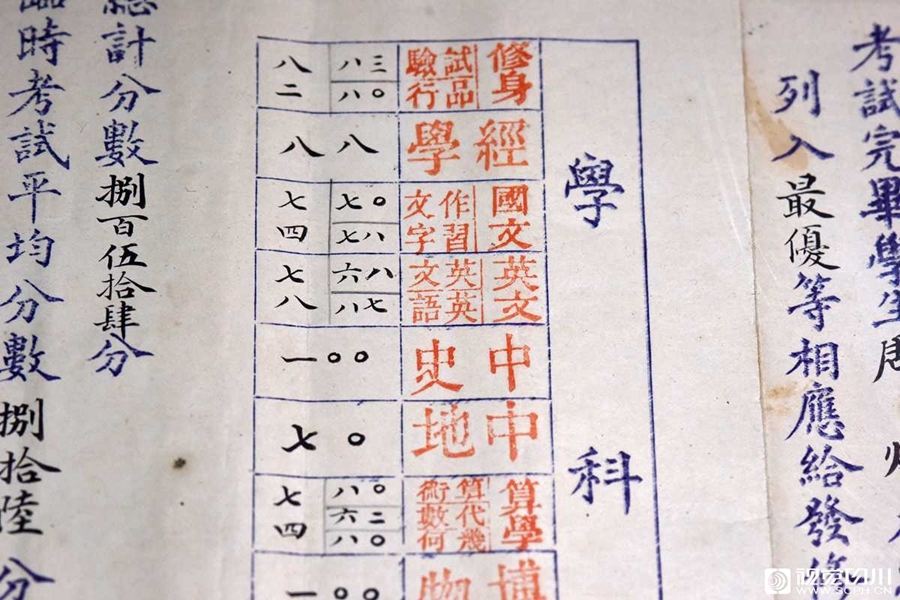 考試完畢學生周
列入最優等相應給發
學科
修身 試驗 八三 八二
品行 八〇
經學 八八
國文 作文 七〇 七四
習字 七八
英文 英文 六八 七八
英語 八七
中史 一〇〇
中地 七〇
算學 算術 八〇 七四
代數 六二
幾何 八〇
博物 一〇〇
總計分數捌百伍拾肆分
臨時考試平均分數捌拾陸分
视觉四川
WWW.SCPH.CN